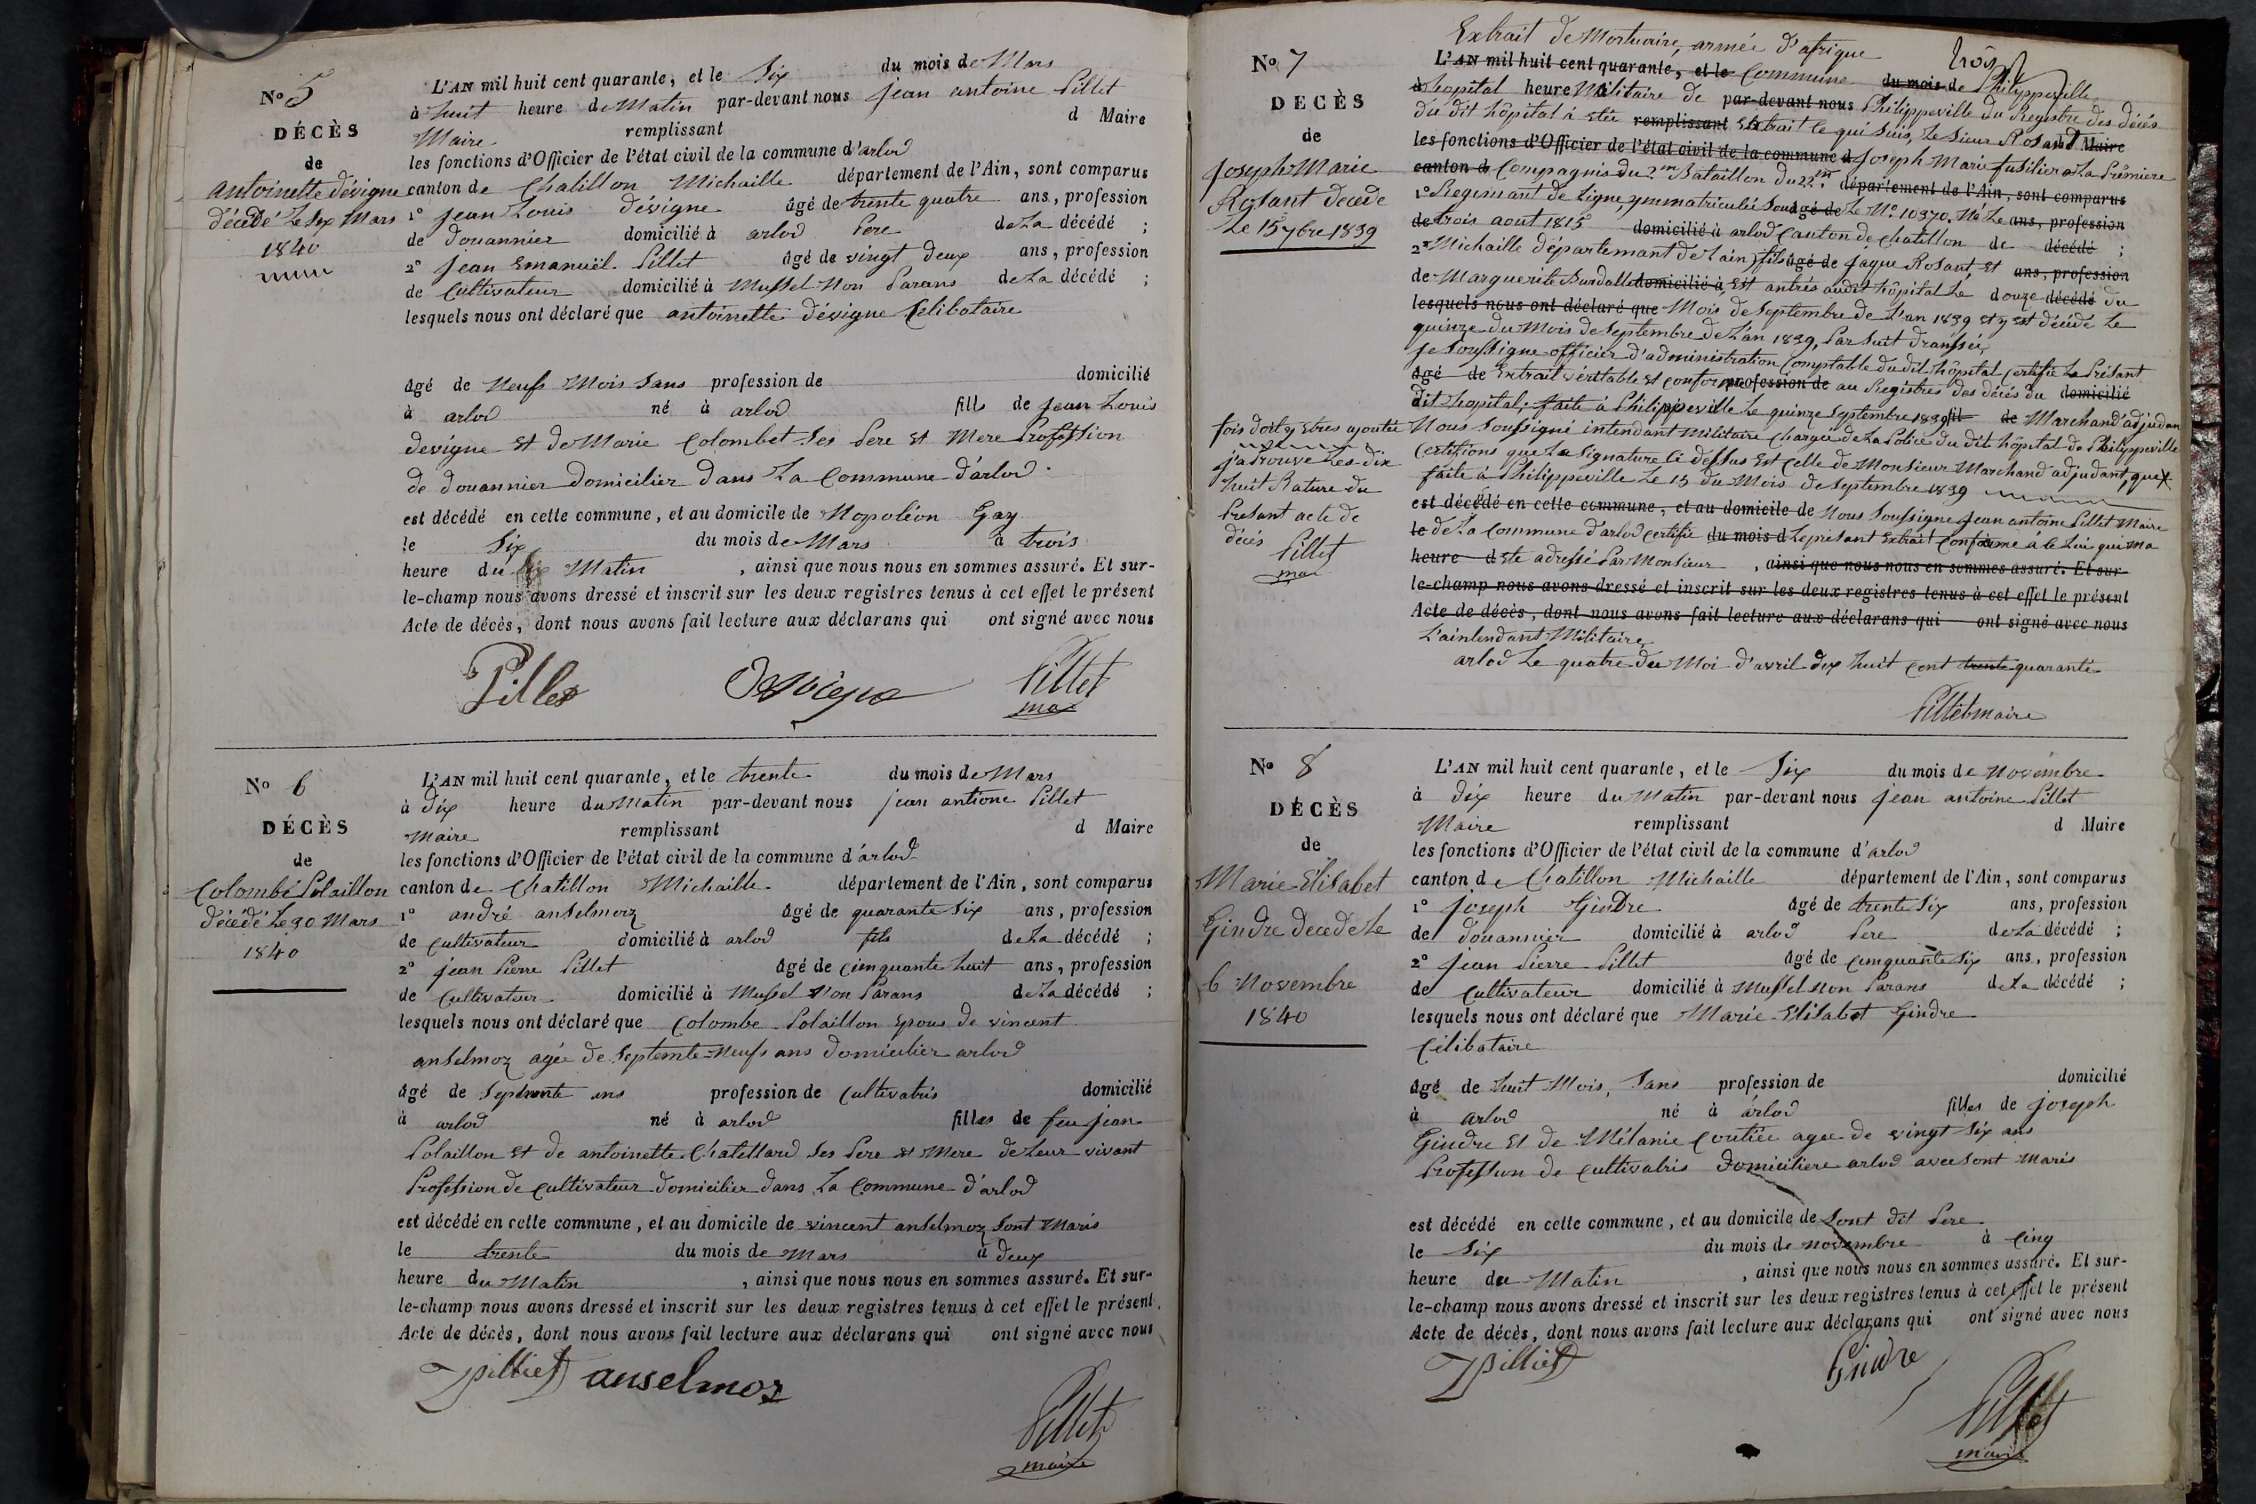 No 5
DÉCÈS
de
antoinette dévigne
décédé Le six Mars
1840
L'AN mil huit cent quarante, et le Six du mois de Mars
à huit heure de Matin par-devant nous jean antoine Pillet
Maire remplissant d Maire
les fonctions d'Officier de l'état civil de la commune d'arlod
canton de Chatillon Michaille département de l'Ain, sont comparus
1º jean Louis dévigne âgé de trente quatre ans, profession
de douannier domicilié à arlod Pere de La décédé ;
2º jean Emanuël Pillet âgé de vingt deux ans, profession
de Cultivateur domicilié à Mussel Non Parans de La décédé ;
lesquels nous ont déclaré que antoinette dévigne Celibataire
âgé de Neufs Mois Sans profession de domicilié
à arlod né à arlod fille de jean Louis
devigne et de Marie Colombet Ses Pere et Mere Profession
de douannier Domicilier dans La Commune d'arlod
est décédé en cette commune, et au domicile de Nopoléon Gay
le Six du mois de Mars à trois
heure du Matin, ainsi que nous nous en sommes assuré. Et sur-
le-champ nous avons dressé et inscrit sur les deux registres tenus à cet effet le présent
Acte de décès, dont nous avons fait lecture aux déclarans qui ont signé avec nous
Pillet Pillet
No 6
DÉCÈS
de
Colombé Polaillon
décédé Le 30 Mars
1840
L'AN mil huit cent quarante, et le trente du mois de Mars
à dix heure du Matin par-devant nous jean antione Pillet
Maire remplissant d Maire
les fonctions d'Officier de l'état civil de la commune d'arlod
canton de Chatillon Michaille département de l'Ain, sont comparus
1º andré anselmoz âgé de quarante six ans, profession
de cultivateur domicilié à arlod fils de La décédé ;
2º jean Pierre Pillet âgé de cinquante huit ans, profession
de Cultivateur domicilié à Mussel Non Parans de La décédé ;
lesquels nous ont déclaré que Colombe Polaillon Epous de vincent
anselmoz agée de Septente Neufs ans domicilier arlod
âgé de Septente ans profession de Cultivatris domicilié
à arlod né à arlod filles de feu jean
Polaillon et de antoinette Chatellard Ses Pere et Mere de Leur vivant
Profession de Cultivateur domicilier dans La Commune d'arlod
est décédé en cette commune, et au domicile de vincent anselmoz Sont Maris
le trente du mois de Mars à deux
heure du Matin, ainsi que nous nous en sommes assuré. Et sur-
le-champ nous avons dressé et inscrit sur les deux registres tenus à cet effet le présent
Acte de décès, dont nous avons fait lecture aux déclarans qui ont signé avec nous
Jpilliet anselmoz
Pillet
maire
Extrait de Mortuaire, armée d'afrique
No 7
DECÈS
de
joseph Marie
Rosant decede
Le 15 7bre 1839
L'AN mil huit cent quarante, et le Commune du mois de Philippeville
à hopital heure Militaire de par-devant nous Philippeville du Registre des décés
du dit hôpital à étée remplissant Extrait ce qui Suis, Le Sieur Rosant Maire
les fonctions d'Officier de l'état civil de la commune d joseph Marie fusilier a La Premiere
canton d Compagnie du 2me Bataillon du 22me département de l'Ain, sont comparus
1º Regemant de Ligne, ymmatriculé Sous âgé de Le No. 10370. Né Le ans, profession
de trois aout 1815 domicilié à arlod Canton de Chatillon de décédé ;
2º Michaille département de L'ain, fils âgé de jaque Rosant, et ans, profession
de Marguerite domicilié à Est antrés audit hôpital Le douze décédé du
lesquels nous ont déclaré que Mois de Septembre de L'an 1839 et y est décédé Le
quinze du Mois de Septembre de L'an 1839, Par Suit
je Soussigne officier d'administration Comptable du dit hôpital certifie Le Présant
âgé de Extrait véritable et conforme profession de au Registres des décés du domicilié
dit hopital; faite à Philippeville Le quinze Septembre 1839 fil de Marchand adjudan
fois doit y Etres ajoutée
j'aprouve Les dix
huit Rature du
Présant acte de
décés Pillet
Nous Soussigné intendant militaire Chargée de La Police du dite hôpital de Philippeville
Certifions que La Signature Ci dessus Est Celle de Monsieur Marchand adjudant, que
faite à Philippeville Le 15 du Mois de Septembre 1839
est décédé en cette commune, et au domicile de Nous Soussigne jean antoine Pillet Maire
le de La Commune d'arlod certifie du mois d Le présant Extrait Conforme à Le Lui qui Ma
heure d Ete adressé Par Monsieur, ainsi que nous nous en sommes assuré. Et sur-
le-champ nous avons dressé et inscrit sur les deux registres tenus à cet effet le présent
Acte de décès, dont nous avons fait lecture aux déclarans qui ont signé avec nous
L'aintendant Militaire
arlod Le quatre du Moi d'avril dix huit cent trente quarante
Pillet maire
No 8
DÉCÈS
de
Marie Elisabet
Gindre decede Le
6 Novembre
1840
L'AN mil huit cent quarante, et le Six du mois de Novembre
à dix heure du Matin par-devant nous jean antoine Pillet
Maire remplissant d Maire
les fonctions d'Officier de l'état civil de la commune d'arlod
canton de Chatillon Michaille département de l'Ain, sont comparus
1º joseph Gindre âgé de trente Six ans, profession
de douannier domicilié à arlod Pere de La décédé ;
2º jean Pierre Pillet âgé de Cinquante Six ans, profession
de Cultivateur domicilié à Mussel Non Parans de La décédé ;
lesquels nous ont déclaré que Marie Elisabet Gindre
Célibataire
âgé de huit Mois, Sans profession de domicilié
à arlod né à arlod filles de joseph
Gindre Et de Mélanie Coutiée agee de vingt Six ans
Profession de Cultivatris Domiciliere arlod avec Sont Maris
est décédé en cette commune, et au domicile de Sont dit Pere
le Six du mois de novembre à Cinq
heure du Matin, ainsi que nous nous en sommes assuré. Et sur-
le-champ nous avons dressé et inscrit sur les deux registres tenus à cet effet le présent
Acte de décès, dont nous avons fait lecture aux déclarans qui ont signé avec nous
Jpilliet Gindre
Pillet
maire